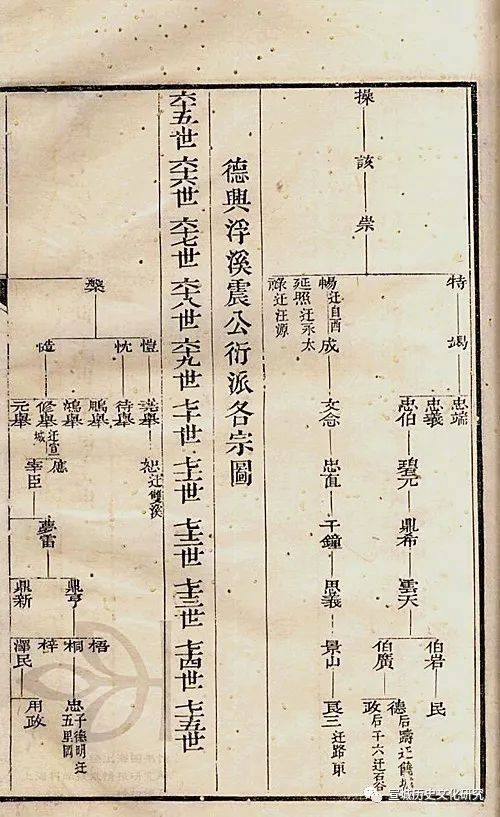 操
該
崇
特
竭
忠端
忠義
忠伯
碧元
鼎希
雲天
伯岩
民
伯廣
德
政
后千六迁石谷
暢
迁自酉
延照迁永太
祿迁汪源
成
文念
忠直
千鐘
思義
景山
良三
迁路
德興浮溪震公衍派各宗圖
六十五世 六十六世 六十七世 六十八世 六十九世 七十世 七十一世 七十二世 七十三世 七十四世 七十五世
槃
愷
忱
恕
迁雙溪
待舉
鵬舉
鴻舉
修舉
迁宣城
元舉
宰臣
夢雷
鼎亨
鼎新
梧
桐
梓
澤民
忠
子德明迁五里岡
用政
宣城历史文化研究